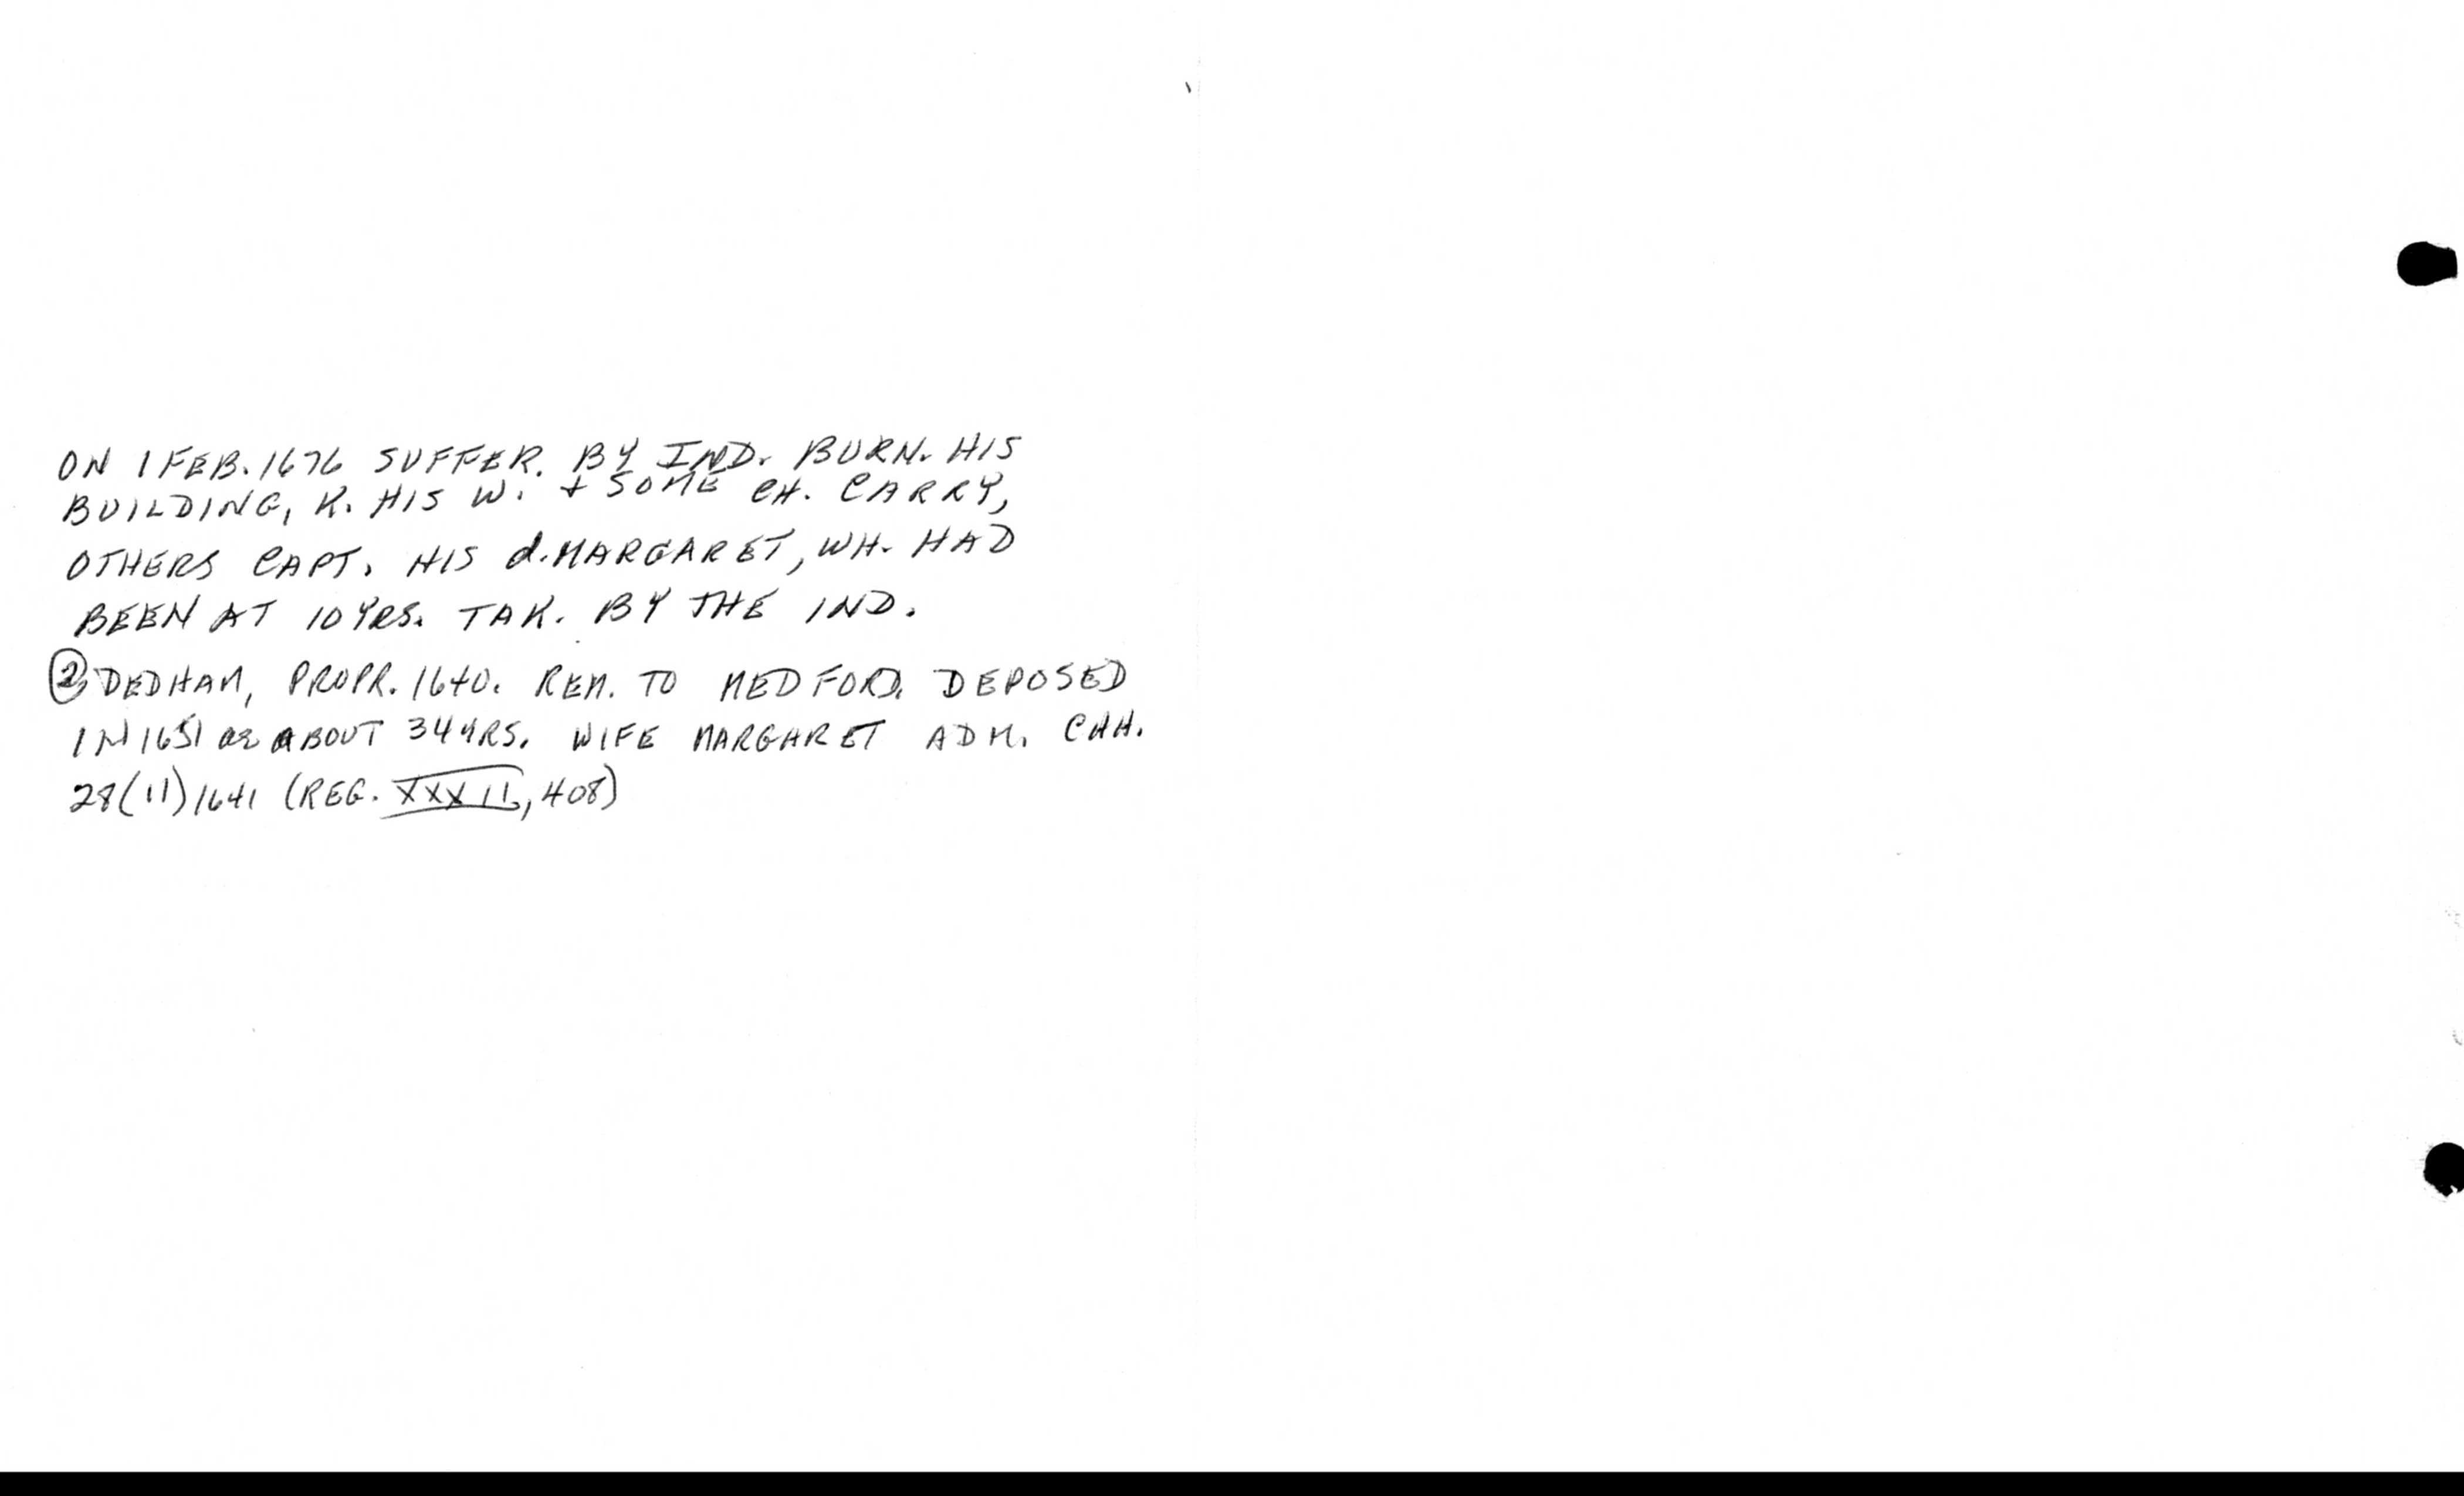 ON 1 FEB. 1676 SUFFER. BY IND. BURN. HIS
BUILDING, K. HIS W. + SOME CH. CARRY,
OTHERS CAPT. HIS d. MARGARET, WH. HAD
BEEN AT 10 YRS. TAK. BY THE IND.
② DEDHAM, PROPR. 1640. REM. TO MEDFORD. DEPOSED
IN 1651 ae ABOUT 34 YRS. WIFE MARGARET ADM. CHH.
28(11)1641 (REG. XXXII, 408)